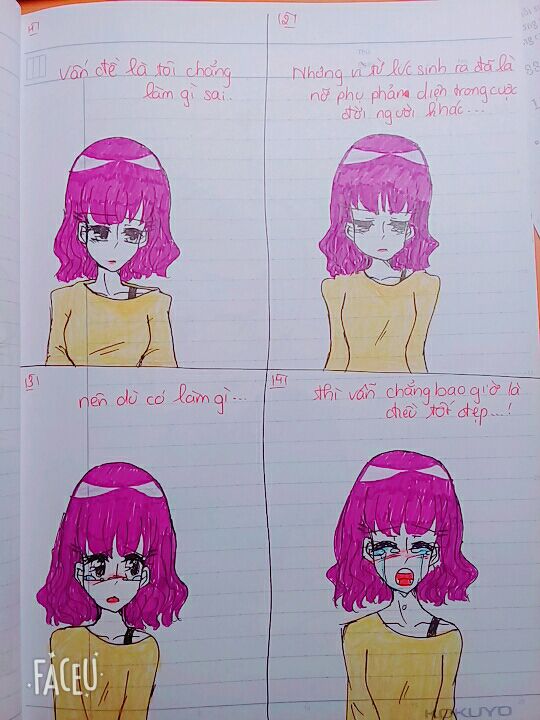 1
vấn đề là tôi chẳng
làm gì sai..
2
Nhưng vì từ lúc sinh ra đã là
nữ phụ phản diện trong cuộc
đời người khác...
3
nên dù có làm gì...
4
thì vẫn chẳng bao giờ là
điều tốt đẹp...!
FACEU
KOKUYO